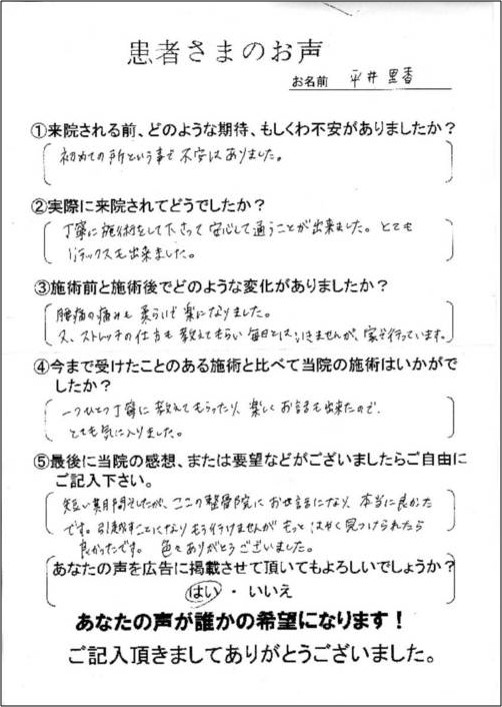 患者さまのお声
お名前 平井 里香
①来院される前、どのような期待、もしくわ不安がありましたか？
初めての所という事で不安はありました。
②実際に来院されてどうでしたか？
丁寧に施術をして下さって安心して通うことが出来ました。とても
リラックスも出来ました。
③施術前と施術後でどのような変化がありましたか？
腰痛の痛みも柔らいで楽になりました。
又、ストレッチの仕方も教えてもらい毎日とはいきませんが、家で行っています。
④今まで受けたことのある施術と比べて当院の施術はいかがで
したか？
一つひとつ丁寧に教えてもらったり、楽しくお話も出来たので、
とても気に入りました。
⑤最後に当院の感想、または要望などがございましたらご自由に
ご記入下さい。
短い期間でしたが、ここの整骨院にお世話になり、本当に良かった
です。引越すことになりもう行けませんがもっとはやく見つけられたら
良かったです。 色々ありがとうございました。
あなたの声を広告に掲載させて頂いてもよろしいでしょうか？
はい ・ いいえ
あなたの声が誰かの希望になります！
ご記入頂きましてありがとうございました。